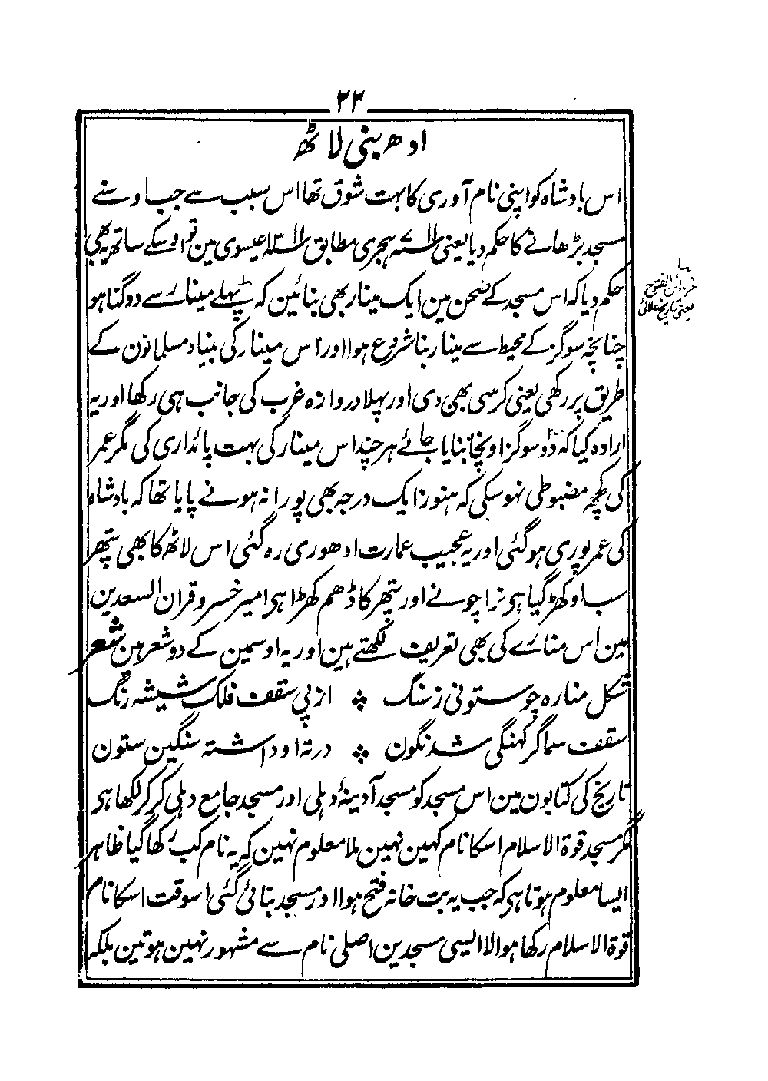 ۲۳
ادھر بنی لاٹھ
اس بادشاہ کو اپنی نام آوری کا بہت شوق تھا اس سبب سے جب اوسنے
مسجد بڑھانے کا حکم دیا یعنی سنہ ۷۱۱ ہجری مطابق سنہ ۱۳۱۱ عیسوی مین تو اوسکے ساتھ یہ بھی
حکم دیا کہ اس مسجد کے صحن مین ایک مینار بھی بنائین کہ پہلے مینار سے دوگنا ہو
چنانچہ سو گز کے محیط سے مینار بنا شروع ہوا اور اس مینار کی بنیاد مسلمانون کے
طریق پر رکھی یعنی کرسی بھی دی اور پہلا دروازہ غرب کی جانب ہی رکھا اور یہ
ارادہ کیا کہ دو سو گز اونچا بنایا جائے ہر چند اس مینار کی بہت پائداری کی مگر عمر
کی کچھ مضبوطی نہوسکی کہ ہنوز ایک درجہ بھی پورا نہ ہونے پایا تھا کہ بادشاہ
کی عمر پوری ہوگئی اور یہ عجیب عمارت ادھوری رہ گئی اس لاٹھ کا بھی پتھر
سب اوکھڑ گیا ہی نرا چونے اور پتھر کا ڈھم کھڑا ہی امیر خسرو قران السعدین
مین اس منارے کی بھی تعریف لکھتے ہین اور یہ اوسمین کے دو شعر ہین شعر
شکل منارہ چو ستونی ز سنگ ؞ از پی سقف فلک شیشہ رنگ
سقف سما گر کہنگی شد نگون ؞ در تہ او داشتہ سنگین ستون
تاریخ کی کتابون مین اس مسجد کو مسجد آدینۂ دہلی اور مسجد جامع دہلی کرکر لکھا ہی
مگر مسجد قوۃ الاسلام اسکا نام کہین نہین ملا معلوم نہین کہ یہ نام کب رکھا گیا ظاہر
ایسا معلوم ہوتا ہی کہ جب یہ بت خانہ فتح ہوا اور مسجد بنائی گئی اسوقت اسکا نام
قوۃ الاسلام رکھا ہو الا ایسی مسجدین اصلی نام سے مشہور نہین ہوتین بلکہ
خزائن الفتوح
یعنی تاریخ علائی